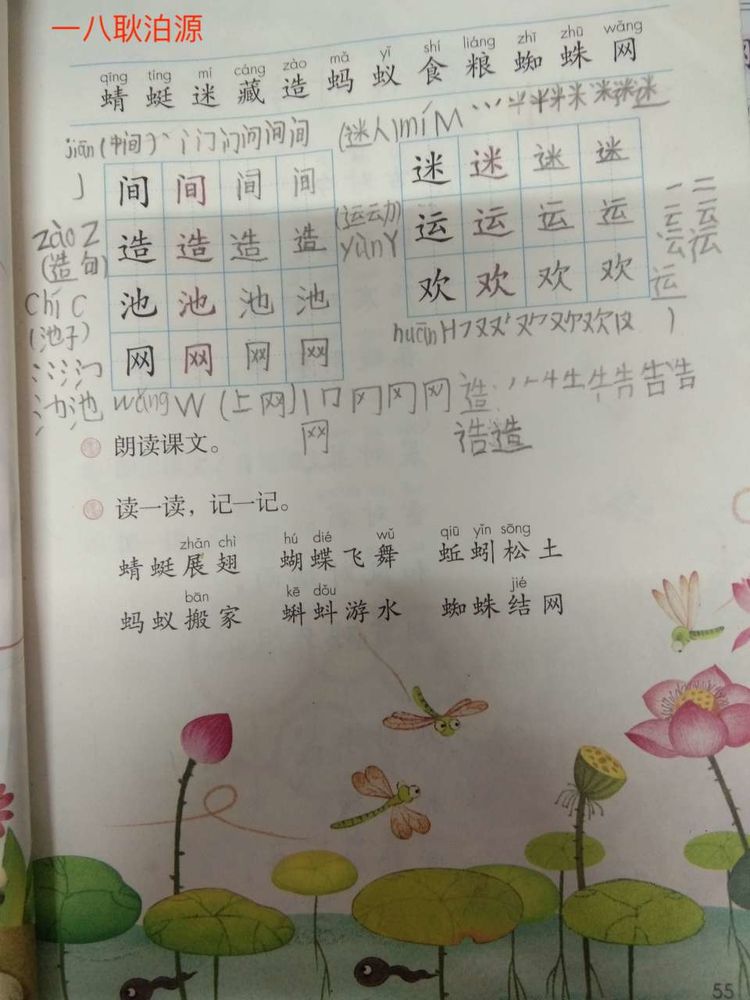 一八耿泊源
qīng tíng mí cáng zào mǎ yǐ shí liáng zhī zhū wǎng
蜻蜓迷藏造蚂蚁食粮蜘蛛网
jiān (中间)
间间间间
J
zào Z
(造句)
造造造造
chí C
(池子)
池池池池
网网网网
池
wǎng W (上网) 冂 冈 网
网
(迷人) mí M 半 米 迷
迷迷迷迷
(运动)
yùn Y
运运运运
一 二 云 运
欢欢欢欢
huān H 又 欢
造: 牛 告 告
造
朗读课文。
读一读，记一记。
zhǎn chì hú dié wǔ qiū yǐn sōng
蜻蜓展翅 蝴蝶飞舞 蚯蚓松土
bān kē dǒu jié
蚂蚁搬家 蝌蚪游水 蜘蛛结网
55